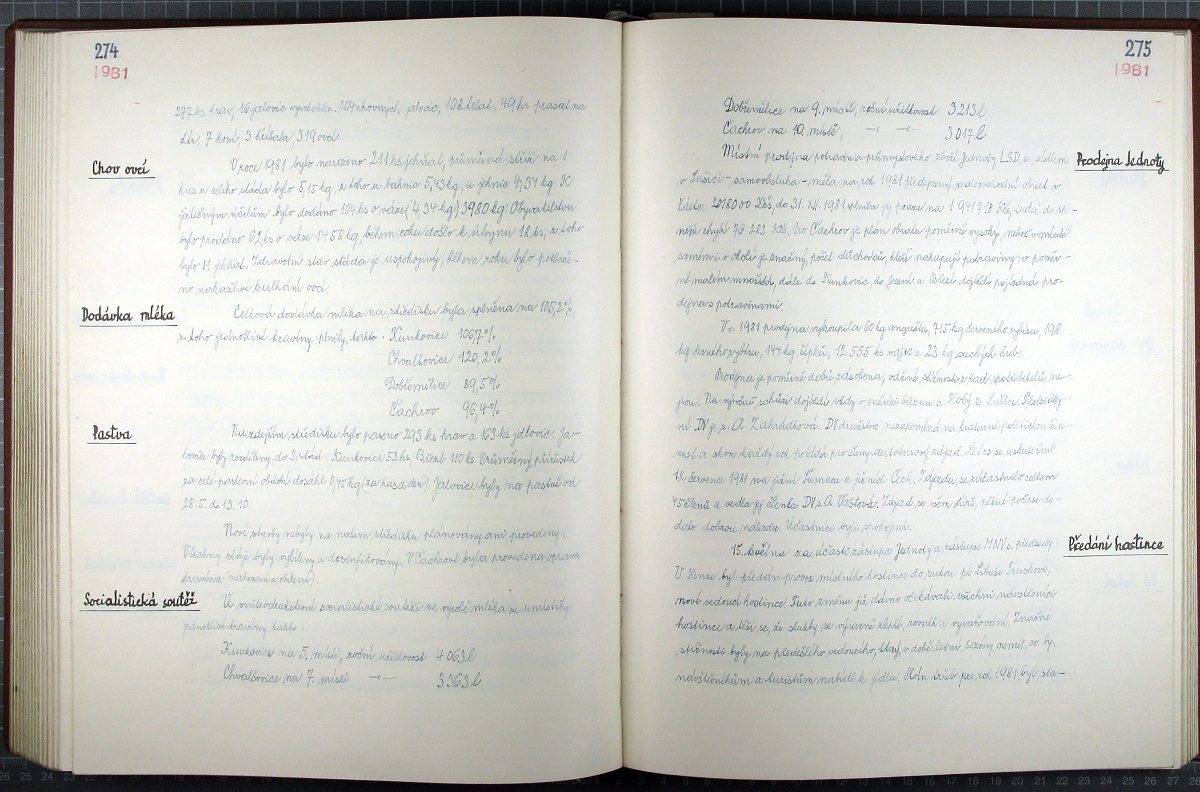 274
1981
297 ks krav, 16 jalovic vysokobřez. 204 chovných jalovic, 108 telat. 49 ks prasat na
žír, 7 koní, 3 hříbata, 319 ovcí.
Chov ovcí
V roce 1981 bylo narozeno 211 ks jehňat, průměrná stříž na 1
kus u celého stáda bylo 5,15 kg, z toho u bahnic 5,43 kg, u jehnic 4,34 kg. K
játečným účelům bylo dodáno 104 ks o váze (4,34 kg) 3980 kg. Obyvatelstvu
bylo prodáno 62 ks o váze 1458 kg, během roku došlo k úhynu 18 ks, z toho
bylo 11 jehňat. Zdravotní stav stáda je uspokojivý, během roku bylo potlače-
no nakažlivé kulhání ovcí.
Dodávka mléka
Celková dodávka mléka na středisku byla splněna na 105,2%
z toho jednotlivé kravíny plnily, takto: Kunkovice 106,7%
Chvalšovice 120,2%
Dobřemilice 89,5%
Čachrov 96,4%
Pastva
Na zdejším středisku bylo paseno 293 ks krav a 163 ks jalovic. Ja-
lovice byly rozděleny do 2 stád. Kunkovice 52 ks, Březí 110 ks. Průměrný přírůstek
za celé pastevní období dosáhl 0,45 kg (za kus a den). Jalovice byly na pastvě od
28.5. do 13.10.
Nové stavby nebyly na našem středisku plánovány ani provedeny.
Všechny stáje byly vybíleny a desinfikovány. V Čachrově byla provedena oprava
kravína nahození a bílení).
Socialistická soutěž
V vnitrookresní socialistické soutěži ve výrobě mléka se umístily
jednotlivé kravíny takto:
Kunkovice na 5. místě, roční užitkovost 4 063 l
Chvalšovice na 7. místě —"— 3363 l
275
1981
Dobřemilice na 9. místě, roční užitkovost 3 213 l
Čachrov na 10. místě, —"— —"— 3 017 l
Prodejna Jednoty
Místní prodejna potravin a průmyslového zboží Jednoty LSD se sídlem
v Sušici - samoobsluha - měla na rok 1981 předepsaný maloobchodní obrat v
částce 2018000 Kčs, do 31. XII. 1981 splnila jej pouze na Kčs, tudíž do spl-
nění chybí 76 282 Kčs. Pro Čachrov je plán obratu poměrně vysoký, neboť v místě
samém i v okolí je značný počet důchodců, kteří nakupují potraviny v poměr-
ně malém množství, dále do Kunkovic, do Jesení a Březí dojíždí pojízdná pro-
dejna s potravinami.
V r. 1981 prodejna vykoupila 60 kg angreštu, 715 kg červeného rybízu, 198
kg černého rybízu, 144 kg šípků, 12.555 ks vajec a 23 kg suchých hub.
Prodejna je poměrně dobře zásobena, vážné stížnosti z řad spotřebitelů ne-
jsou. Na výroční schůzi dojíždí vždy v měsíci březnu s. Holý ze Sušice. Předsedky-
ní DV je s. A. Zahrádková. DV družstva nezapomíná na kulturně politickou čin-
nost a skoro každý rok pořádá pro členy autobusový zájezd. Letos se uskutečnil
12. července 1981 na jižní Šumavu a již. Čech. Zájezdu se zúčastnilo celkem
45 členů a vedla jej členka DV s. A. Vaštová. Zájezd se všem líbil, pěkné počasí do-
dalo dobrou náladu. Účastníci byli spokojeni.
Předání hostince
15. května za účasti zástupce Jednoty a zástupce MNV s. předsedy
V. Hinze byl předán provoz místního hostince do rukou pí Libuši Pruskové,
nové vedoucí hostince. Tuto změnu již dávno očekávali všichni návštěvníci
hostince a těší se, že služby se výrazně zlepší, rovněž i vyvařování. Značné
stížnosti byly na předešlého vedoucího, který v době letní sezóny neměl, co by
návštěvníkům a turistům nabídl k jídlu. Plán tržeb pro rok 1981 byl sta-